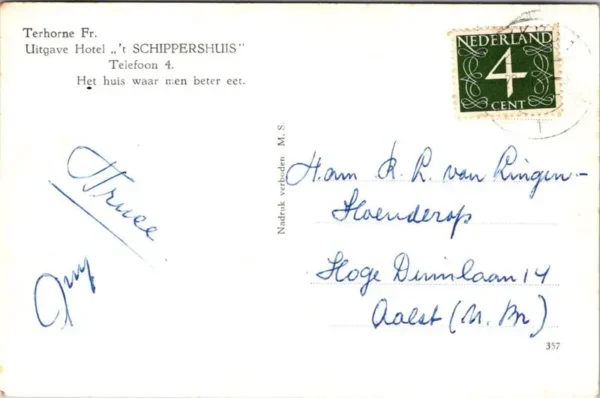 Terhorne Fr.
Uitgave Hotel „'t SCHIPPERSHUIS"
Telefoon 4.
Het huis waar men beter eet.
NEDERLAND
4
CENT
Nadruk verboden M. S.
Fam. K. L. van Ringen-
Hoenderop
Hoge Duinlaan 14
Aalst (N. Br.)
Truce
357